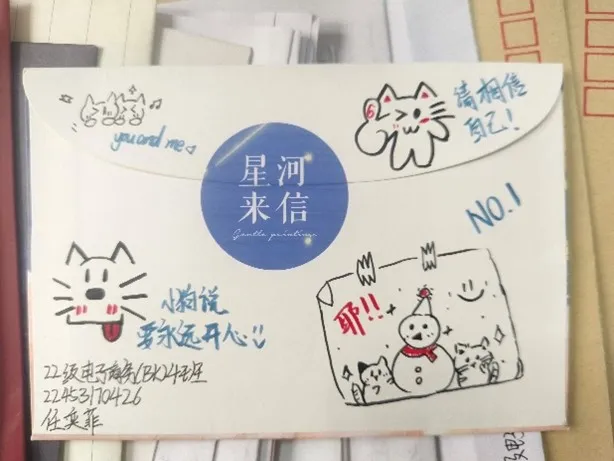 you and me
请相信
自己!
星河
来信
Gentle printing
NO.1
小狗说
要永远开心!!
耶!!
22级电子商务(BK)24班
22453170426
任奕菲